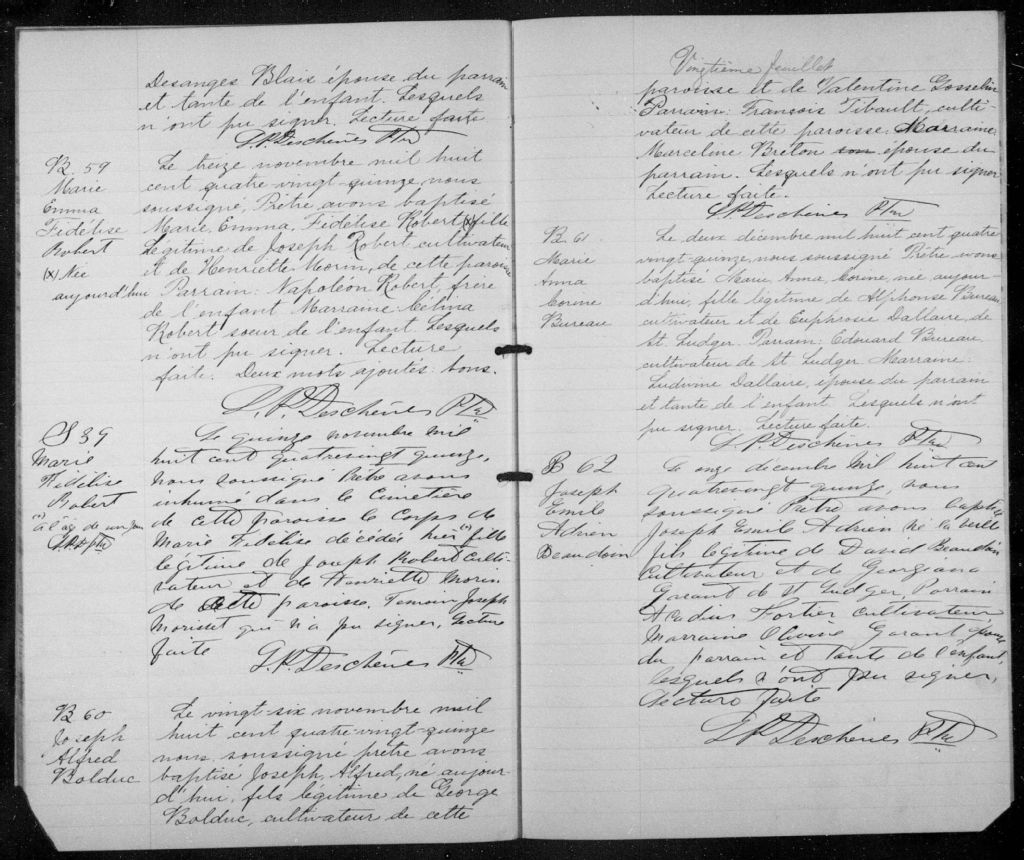 Desanges Blais épouse du parrain
et tante de l'enfant. Lesquels
n'ont pu signer. Lecture faite
L.P. Deschênes Ptre
B. 59
Marie
Emma
Fidélise
Robert
(x) née
aujourd'hui
Le treize novembre mil huit
cent quatre-vingt-quinze, nous
soussigné, Prêtre avons baptisé
Marie, Emma, Fidélise Robert (x) fille
Légitime de Joseph Robert cultivateur
et de Henriette Morin, de cette paroisse
Parrain: Napoléon Robert, frère
de l'enfant Marraine Célina
Robert soeur de l'enfant Lesquels
n'ont pu signer. Lecture
faite. Deux mots ajoutés: bons.
L.P. Deschênes Ptre
S 39
Marie
Fidélise
Robert
à l'âge de un jour
Le quinze novembre mil
huit cent quatrevingt quinze,
nous soussigné Prêtre avons
inhumé dans le Cimetière
de cette paroisse le corps de
Marie Fidélise décédée hier fille
légitime de Joseph Robert culti-
vateur et de Henriette Morin
de cette paroisse. Temoin Joseph
Morisset qui n'a pu signer, Lecture
faite
L.P. Deschênes Ptre
B 60
Joseph
Alfred
Bolduc
Le vingt-six novembre mil
huit cent quatre-vingt-quinze
nous soussigné prêtre avons
baptisé Joseph, Alfred, né aujour-
d'hui, fils légitime de George
Bolduc, cultivateur de cette
Vingtième feuillet
paroisse et de Valentine Gosselin
Parrain: François Tibault, culti-
vateur de cette paroisse Marraine
Marceline Breton son épouse du
parrain. Lesquels n'ont pu signer
Lecture faite.
L.P. Deschênes Ptre
B. 61
Marie
Anna
Corine
Bureau
Le deux décembre mil huit cent quatre
vingt-quinze, nous soussigné Prêtre avons
baptisé Marie, Anna, Corine, née aujour-
d'hui, fille légitime de Alphonse Bureau
cultivateur et de Euphrosie Dallaire, de
St Ludger. Parrain: Edouard Bureau
cultivateur de St Ludger Marraine:
Ludivine Dallaire, épouse du parrain
et tante de l'enfant. Lesquels n'ont
pu signer. Lecture faite.
L.P. Deschênes Ptre
B 62
Joseph
Emile
Adrien
Beaudoin
Le onze décembre mil huit cent
quatrevingt quinze, nous
soussigné Prêtre avons baptisé
Joseph Emile Adrien né la veille
fils légitime de David Beaudoin
Cultivateur et de Georgeana
Garant de St Ludger, Parrain
Fortier cultivateur
Marraine Garant épouse
du parrain et tante de l'enfant,
lesquels n'ont pu signer,
Lecture faite
L.P. Deschênes Ptre